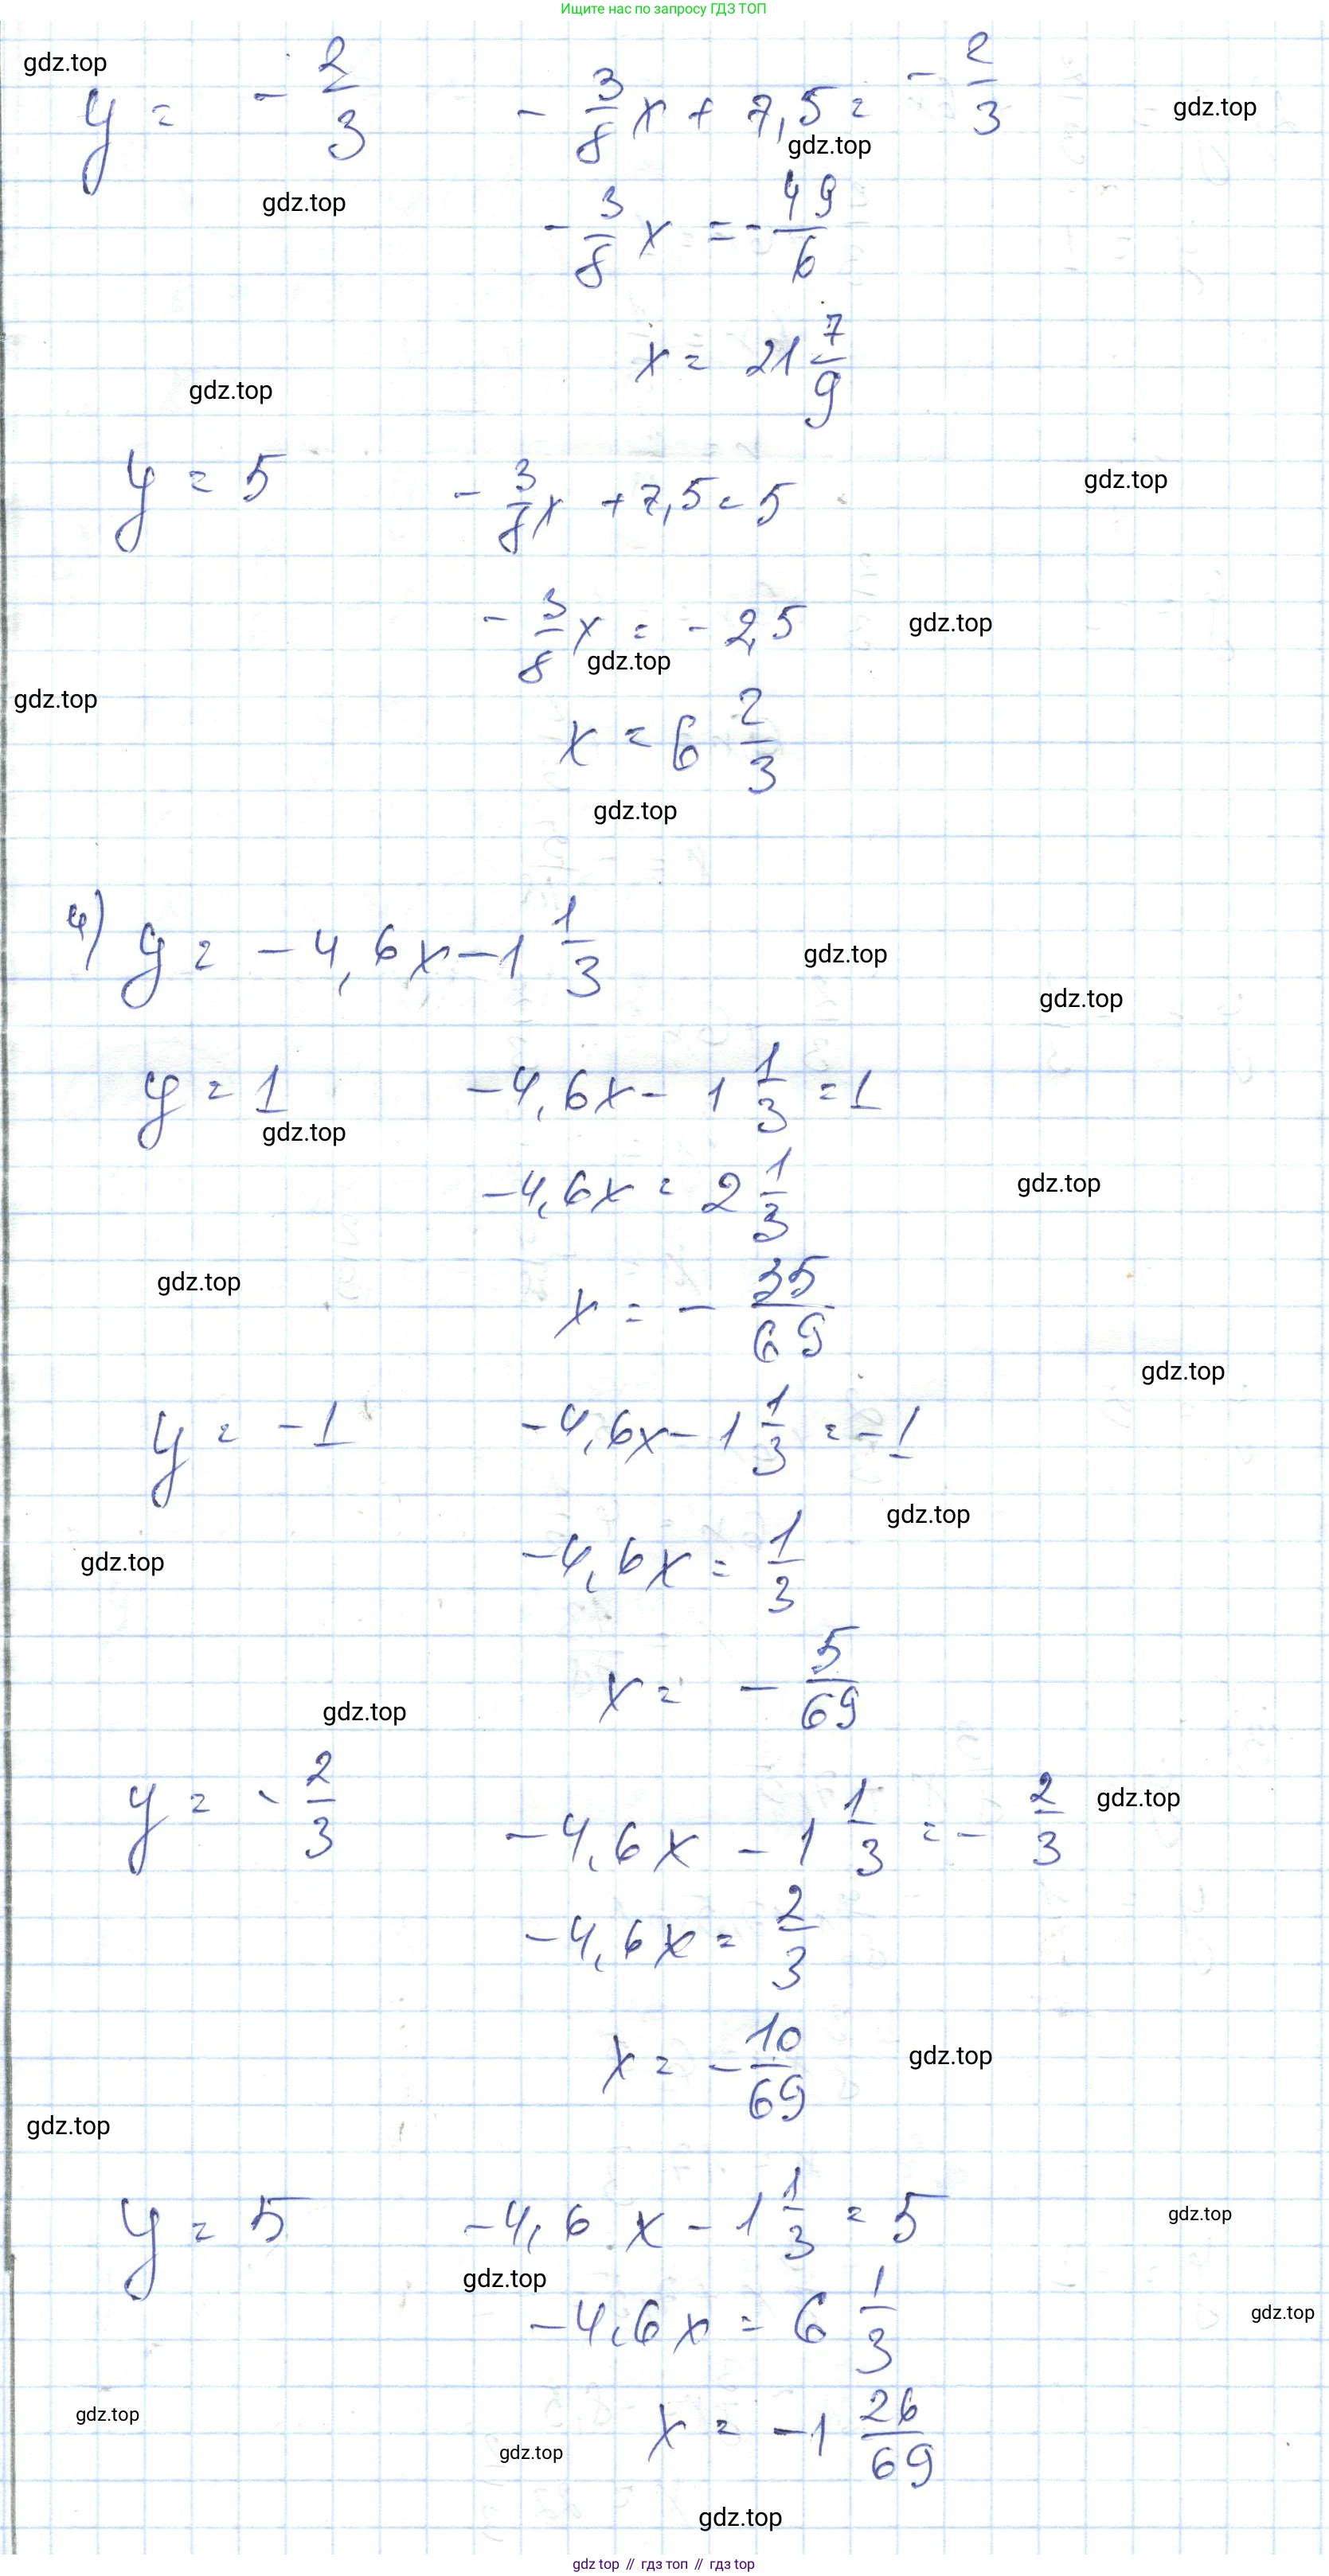 Ищите нас по запросу ГДЗ ТОП
gdz.top
y = - 2/3    - 3/8 x + 7,5 = - 2/3
gdz.top
gdz.top
gdz.top
- 3/8 x = - 49/6
x = 21 7/9
gdz.top
y = 5    - 3/8 x + 7,5 = 5
gdz.top
- 3/8 x = - 2,5
gdz.top
gdz.top
gdz.top
x = 6 2/3
gdz.top
4) y = - 4,6x - 1 1/3
gdz.top
gdz.top
y = 1    - 4,6x - 1 1/3 = 1
gdz.top
- 4,6x = 2 1/3
gdz.top
gdz.top
x = - 35/69
gdz.top
y = - 1    - 4,6x - 1 1/3 = - 1
gdz.top
- 4,6x = 1/3
gdz.top
x = - 5/69
gdz.top
y = - 2/3    - 4,6x - 1 1/3 = - 2/3
gdz.top
- 4,6x = 2/3
x = - 10/69
gdz.top
gdz.top
y = 5    - 4,6x - 1 1/3 = 5
gdz.top
gdz.top
- 4,6x = 6 1/3
gdz.top
x = - 1 26/69
gdz.top
gdz.top
gdz.top
gdz top // гдз топ // gdz top